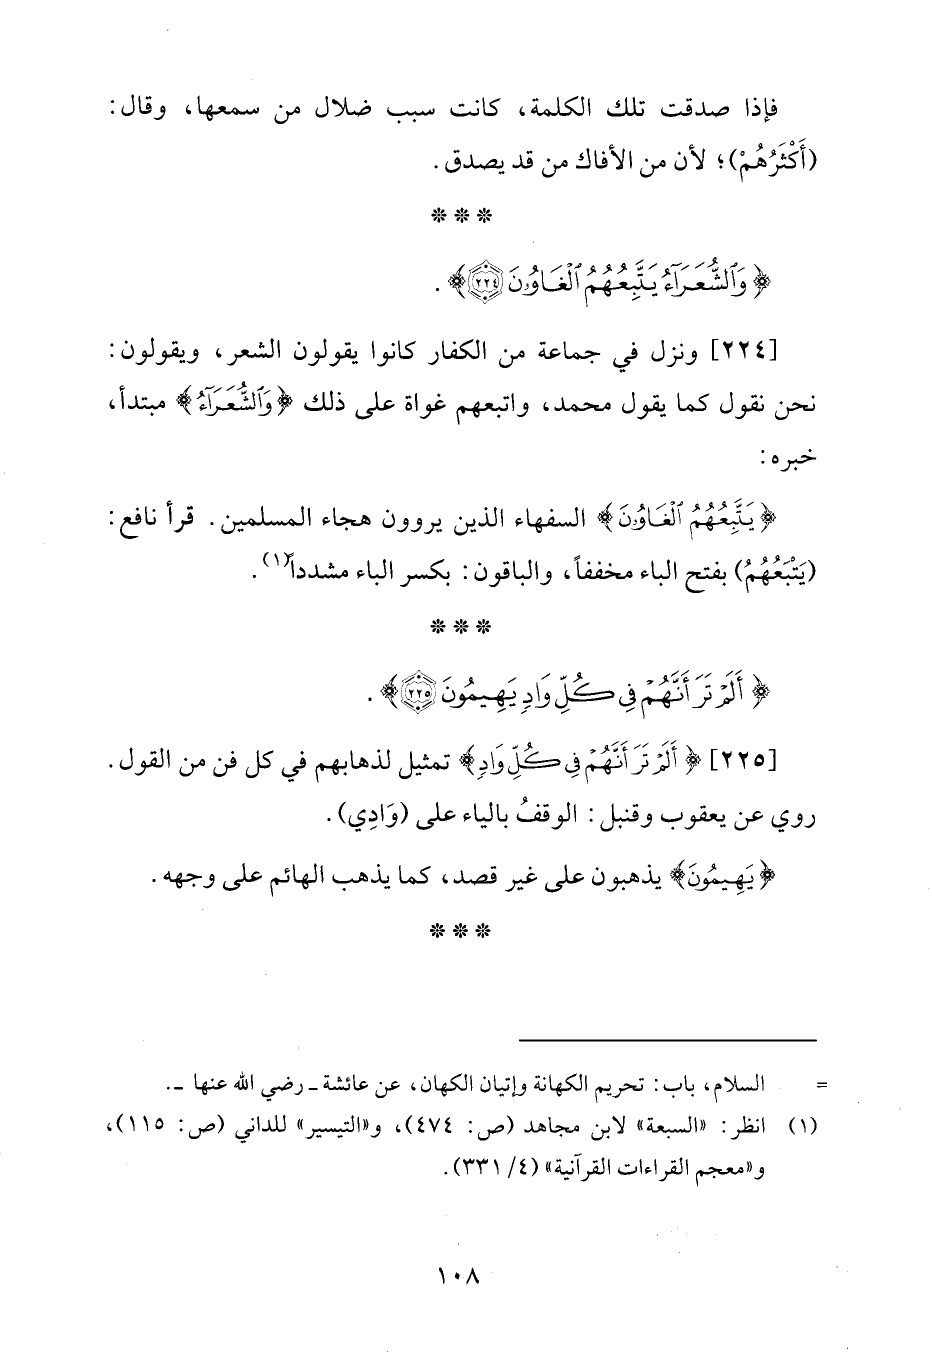 فإذا صدقت تلك الكلمة، كانت سبب ضلال من سمعها، وقال:
(أَكْثَرُهُمْ)؛ لأن من الأفاك من قد يصدق.
* * *
﴿وَٱلشُّعَرَآءُ يَتَّبِعُهُمُ ٱلْغَاوُۥنَ ٢٢٤﴾.
[٢٢٤] ونزل في جماعة من الكفار كانوا يقولون الشعر، ويقولون:
نحن نقول كما يقول محمد، واتبعهم غواة على ذلك ﴿وَٱلشُّعَرَآءُ﴾ مبتدأ،
خبره:
﴿يَتَّبِعُهُمُ ٱلْغَاوُۥنَ﴾ السفهاء الذين يروون هجاء المسلمين. قرأ نافع:
(يَتْبَعُهُمُ) بفتح الباء مخففاً، والباقون: بكسر الباء مشدداً(١).
* * *
﴿أَلَمْ تَرَ أَنَّهُمْ فِي كُلِّ وَادٍ يَهِيمُونَ ٢٢٥﴾.
[٢٢٥] ﴿أَلَمْ تَرَ أَنَّهُمْ فِي كُلِّ وَادٍ﴾ تمثيل لذهابهم في كل فن من القول.
روي عن يعقوب وقنبل: الوقفُ بالياء على (وَادِي).
﴿يَهِيمُونَ﴾ يذهبون على غير قصد، كما يذهب الهائم على وجهه.
* * *
= السلام، باب: تحريم الكهانة وإتيان الكهان، عن عائشة ـ رضي الله عنها ـ.
(١) انظر: «السبعة» لابن مجاهد (ص: ٤٧٤)، و«التيسير» للداني (ص: ١١٥)،
و«معجم القراءات القرآنية» (٤/ ٣٣١).
١٠٨